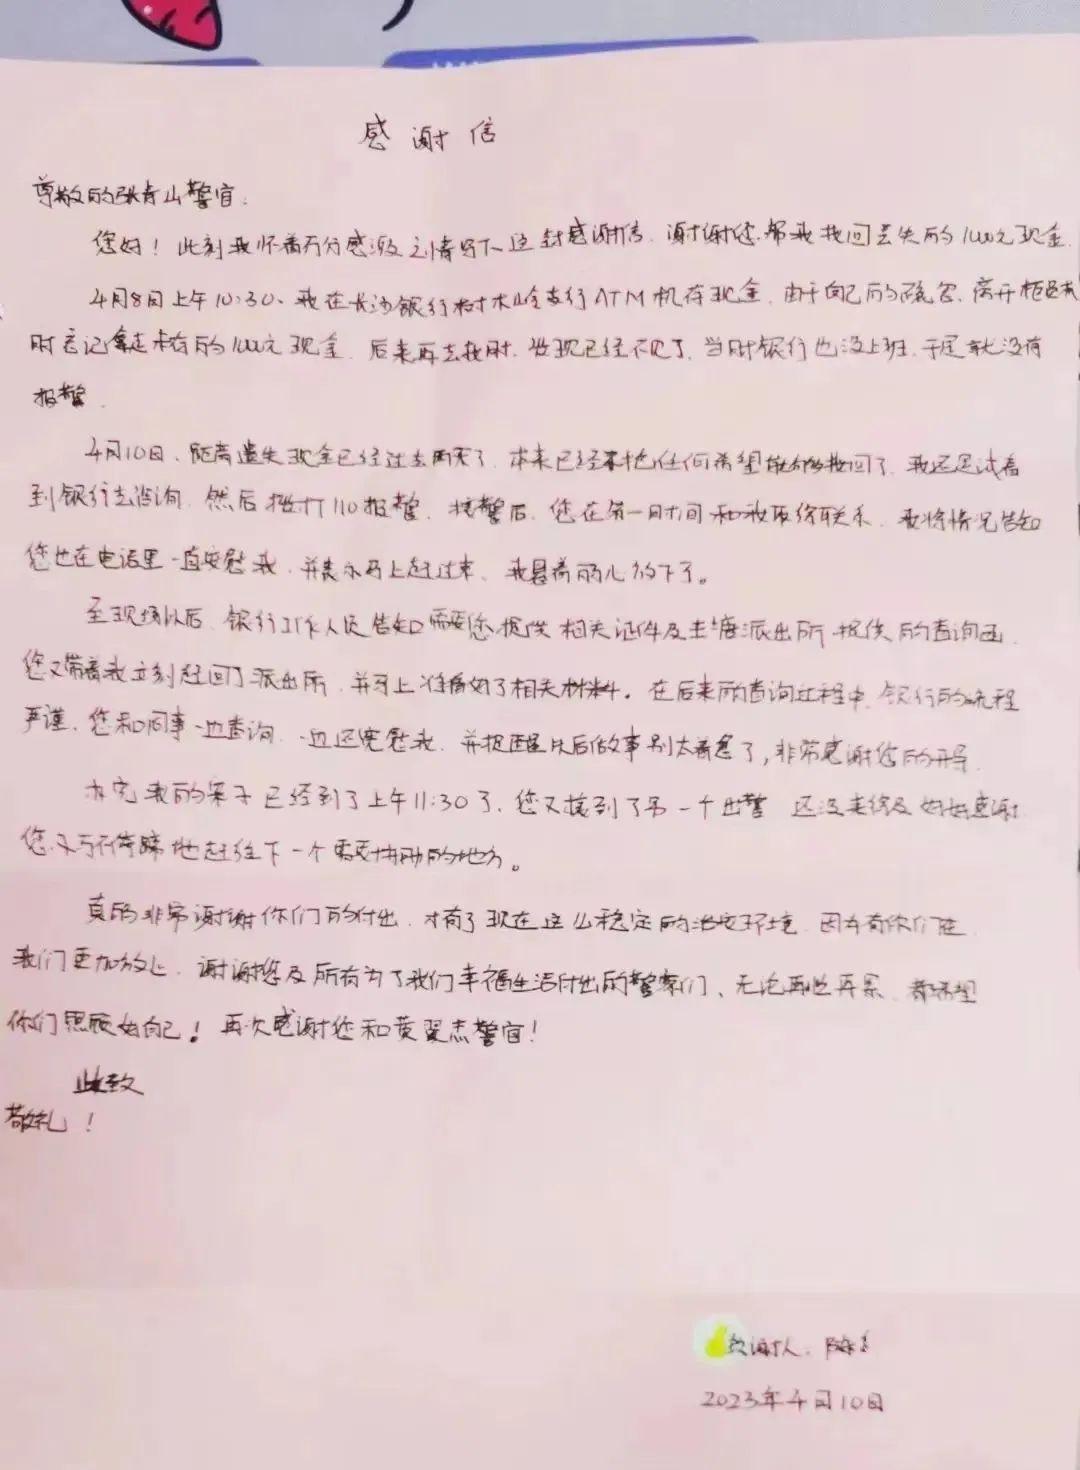 感谢信
尊敬的张青山警官：
您好！此刻我怀着万分感激之情写下这封感谢信，谢谢您帮我找回丢失的1000元现金
4月8日上午10:30、我在长沙银行树木岭支行ATM机存现金，由于自己的疏忽，离开柜员机
时忘记拿走 的1000元现金，后来再去找时，发现已经不见了，当时银行也没上班，于是就没有
报警．
4月10日、距离遗失现金已经过去两天了，本来已经不抱任何希望能够找回了，我还是试着
到银行去咨询，然后拨打110报警，接警后，您在第一时间和我取得联系，我将情况告知
您也在电话里一直安慰我，并表示马上赶过来，我悬着的心放下了。
至现场以后，银行工作人员告知需要您提供相关证件及圭塘派出所提供的查询函，
您又带着我立刻赶回了派出所，并马上准备好了相关材料．在后来的查询过程中，银行的流程
严谨，您和同事一边查询，一边还宽慰我，并提醒以后做事别太着急了，非常感谢您的开导．
办完我的案子已经到了上午11:30了，您又接到了另一个出警，还没来得及好好感谢
您又马不停蹄地赶往下一个需要协助的地方。
真的非常谢谢你们的付出，才有了现在这么稳定的治安环境，因为有你们在，
我们更加放心，谢谢您及所有为了我们幸福生活付出的警察们、无论再忙再累，都希望
你们照顾好自己！再次感谢您和黄翼志警官！
此致
敬礼！
致谢人：陈
2023年4月10日